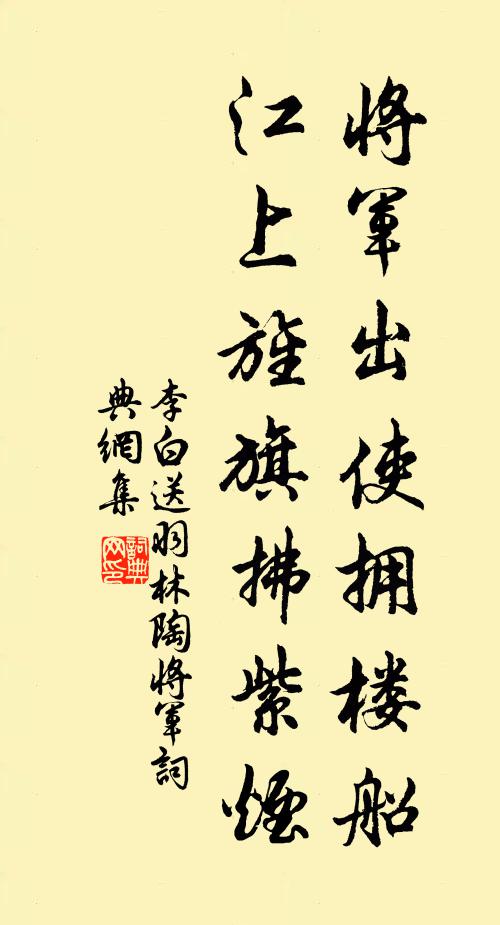 将军出使拥楼船
江上旌旗拂紫煙
李白送羽林陶将军詞
典網集
詞典
网印